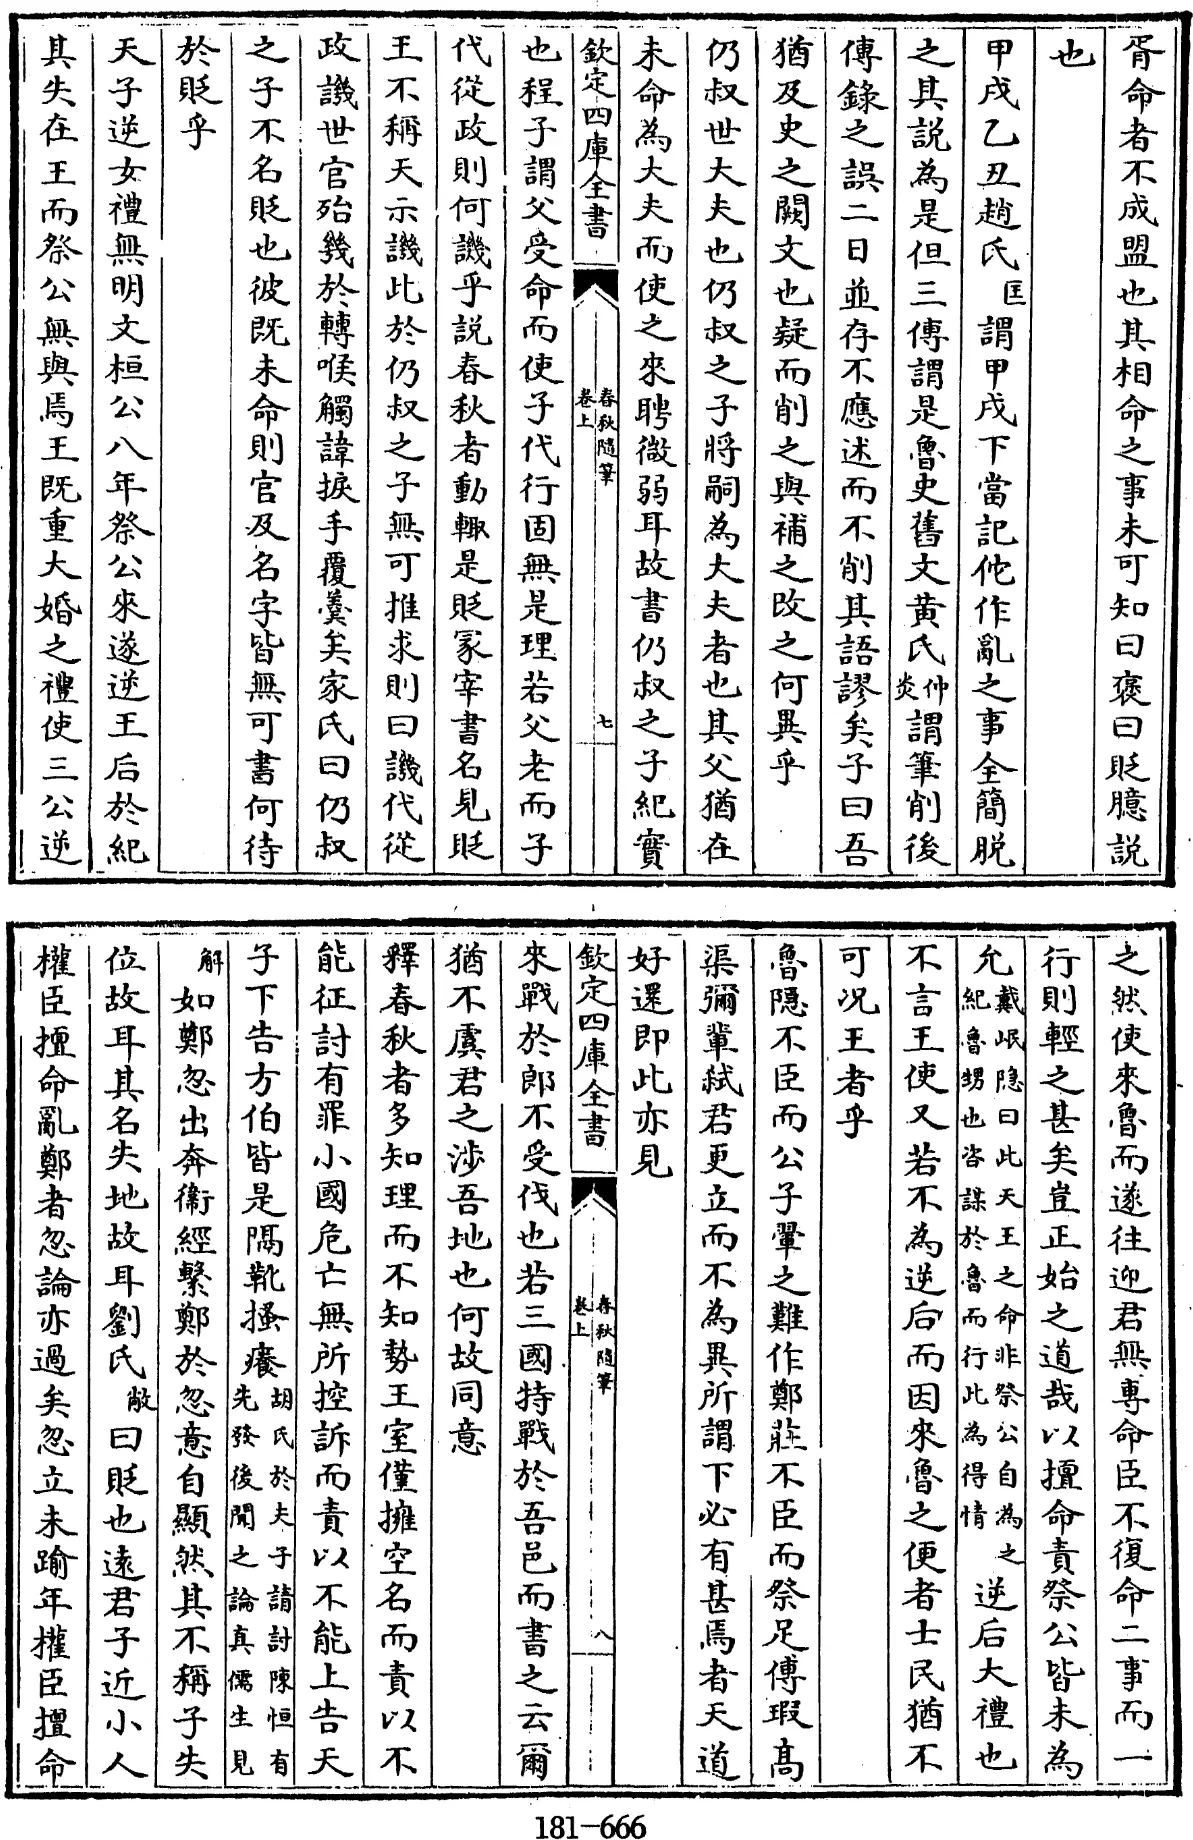 胥命者不成盟也其相命之事未可知曰褒曰貶臆説
也
甲戌乙丑趙氏匡謂甲戌下當記佗作亂之事全簡脱
之其説為是但三傳謂是魯史舊文黄氏仲炎謂筆削後
傳錄之誤二日並存不應述而不削其語謬矣子曰吾
猶及史之闕文也疑而削之與補之改之何異乎
仍叔世大夫也仍叔之子將嗣為大夫者也其父猶在
未命為大夫而使之來聘微弱耳故書仍叔之子紀實
欽定四庫全書
春秋隨筆
卷上
七
也程子謂父受命而使子代行固無是理若父老而子
代從政則何譏乎説春秋者動輒是貶冢宰書名見貶
王不稱天示譏此於仍叔之子無可推求則曰譏代從
政譏世官殆幾於轉喉觸諱捩手覆羹矣家氏曰仍叔
之子不名貶也彼既未命則官及名字皆無可書何待
於貶乎
天子逆女禮無明文桓公八年祭公來遂逆王后於紀
其失在王而祭公無與焉王既重大婚之禮使三公逆
之然使來魯而遂往迎君無專命臣不復命二事而一
行則輕之甚矣豈正始之道哉以擅命責祭公皆未為
允戴岷隠曰此天王之命非祭公自為之紀魯甥也咨謀於魯而行此為得情逆后大禮也
不言王使又若不為逆后而因來魯之便者士民猶不
可况王者乎
魯隠不臣而公子翬之難作鄭莊不臣而祭足傅瑕髙
渠彌輩弑君更立而不為異所謂下必有甚焉者天道
好還即此亦見
欽定四庫全書
春秋隨筆
卷上
八
來戰於郎不受伐也若三國特戰於吾邑而書之云爾
猶不虞君之涉吾地也何故同意
釋春秋者多知理而不知勢王室僅擁空名而責以不
能征討有罪小國危亡無所控訴而責以不能上告天
子下告方伯皆是隔靴搔癢胡氏於夫子請討陳恒有先發後聞之論真儒生見
解如鄭忽出奔衞經繫鄭於忽意自顯然其不稱子失
位故耳其名失地故耳劉氏敞曰貶也遠君子近小人
權臣擅命亂鄭者忽論亦過矣忽立未踰年權臣擅命
181-666